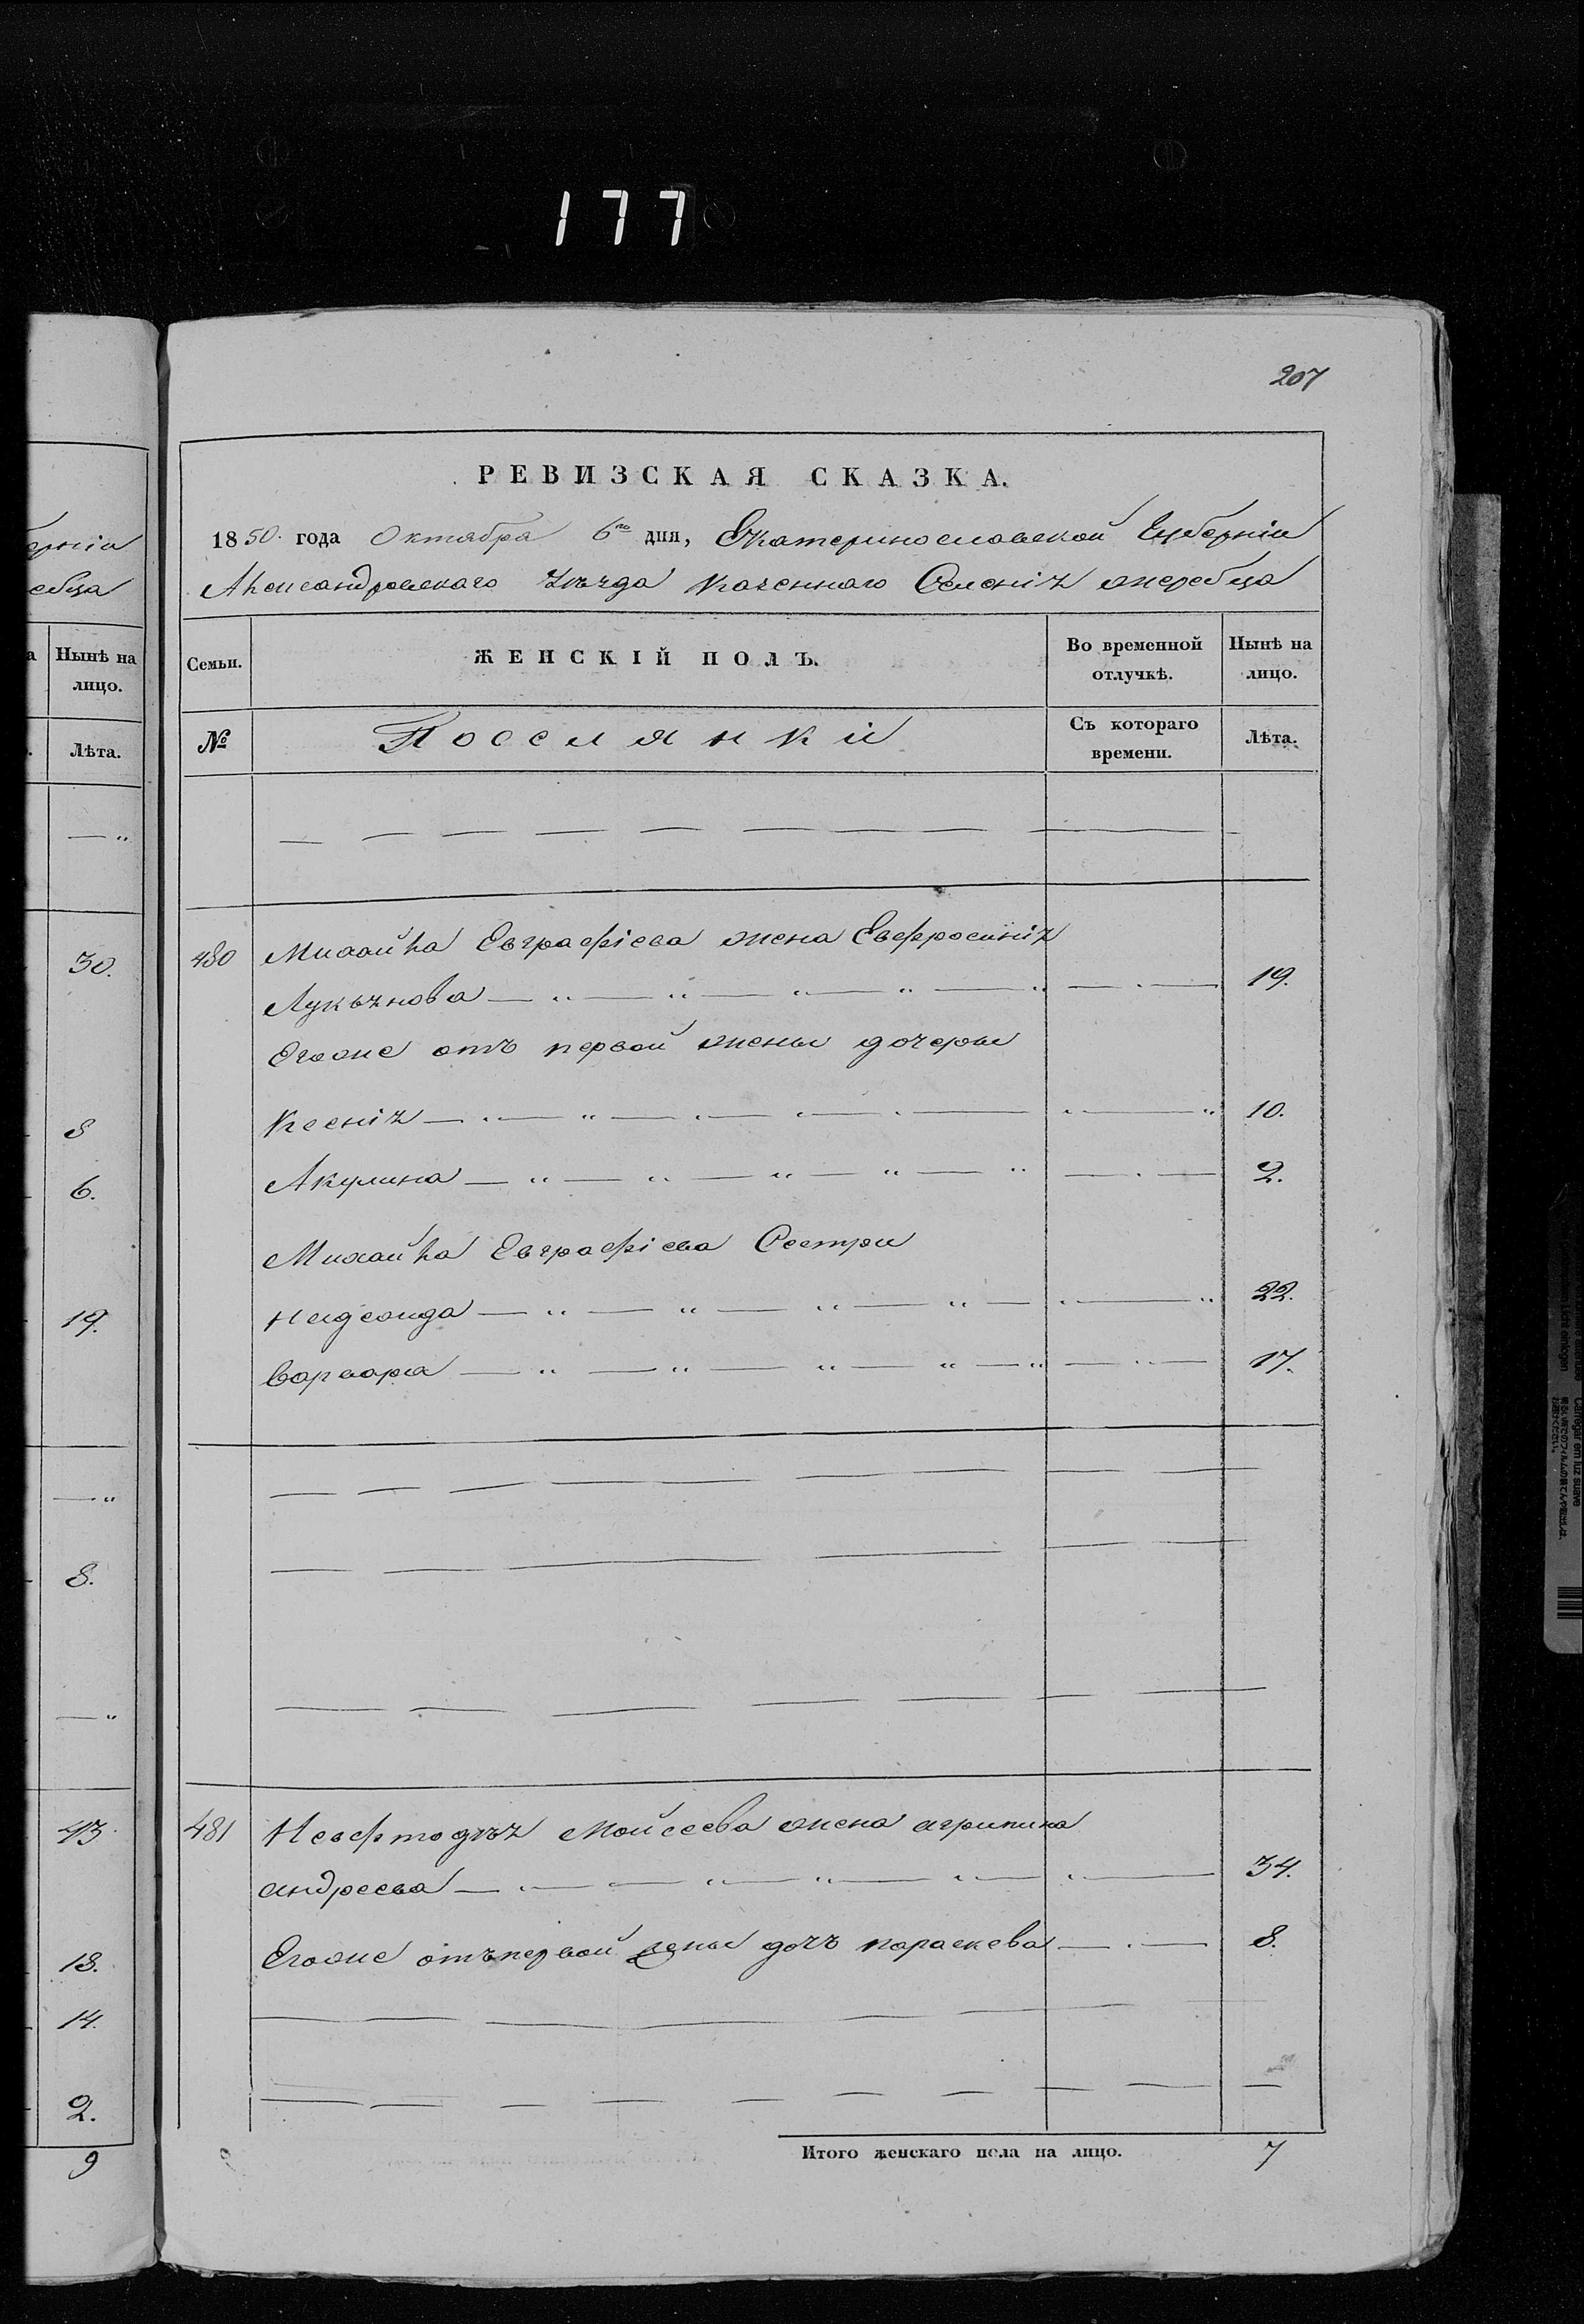 177
207
РЕВИЗСКАЯ СКАЗКА.
1850. года Октября 6го дня, Екатеринославской Губерніи
Александровскаго Уѣзда Казеннаго Селенія жеребца
Семьи.
ЖЕНСКІЙ ПОЛЪ.
Во временной отлучкѣ.
Нынѣ на лицо.
№
Поселянки
Съ котораго времени.
Лѣта.
480 Михайла Евграфіева жена Евфросинія
Лукьянова 19.
Егоже отъ первой жены дочеры
Ксенія 10.
Акулина 2.
Михайла Евграфіева Сестры
22.
варвара 17.
481 Моисеева жена агрипина
андреева 34.
Егоже отъ первой жены дочь параскева 8.
Итого женскаго пола на лицо. 7
ерніи
ебца
Нынѣ на
лицо.
Лѣта.
30.
8
6.
19.
8.
43.
18.
14.
2.
9